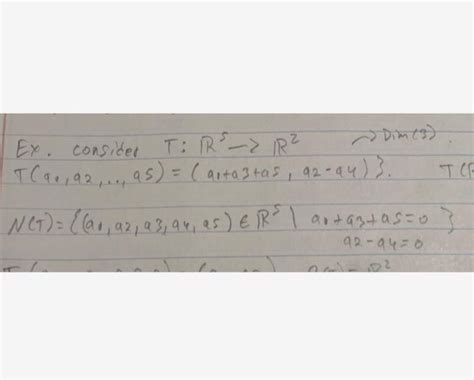 Ex. consider T: ℝ⁵ → ℝ² → Dim(3).
T(a1, a2, .., a5) = (a1+a3+a5, a2-a4)}. T(
N(T)={(a1, a2, a3, a4, a5) ∈ ℝ⁵ | a1+a3+a5=0 }
a2-a4=0